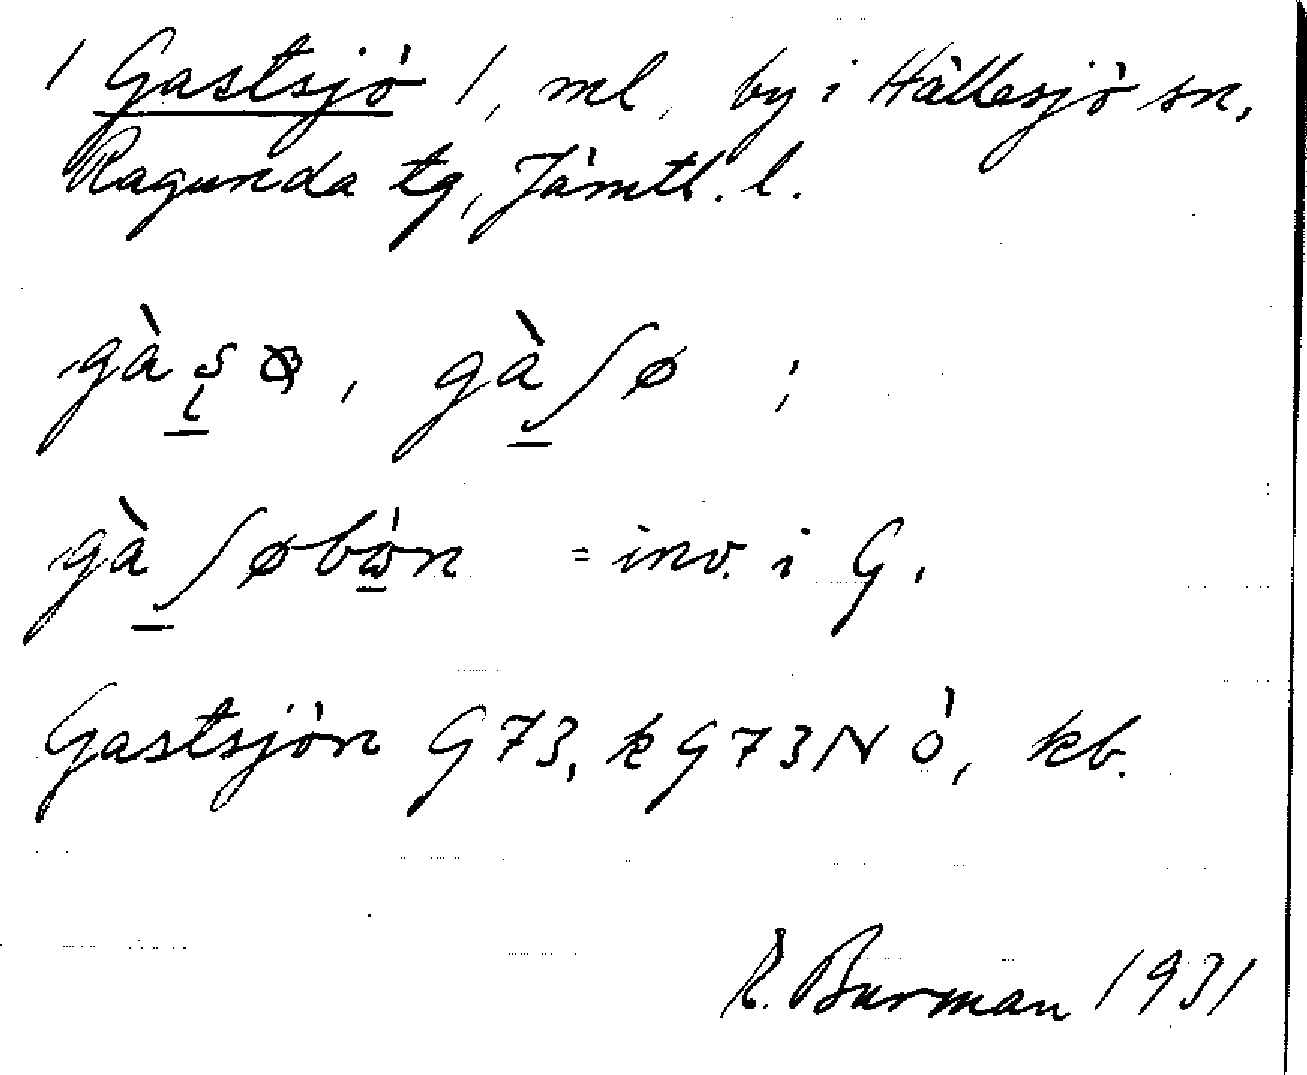 / Gastsjö /, ml, by i Hällesjö sn,
Ragunda tg, Jämtl. l.
gàʂ, gàʃø ;
gàʃøbòn = inv. i G.
Gastsjön G 73, k G 73 N Ö, kb.
R. Burman 1931